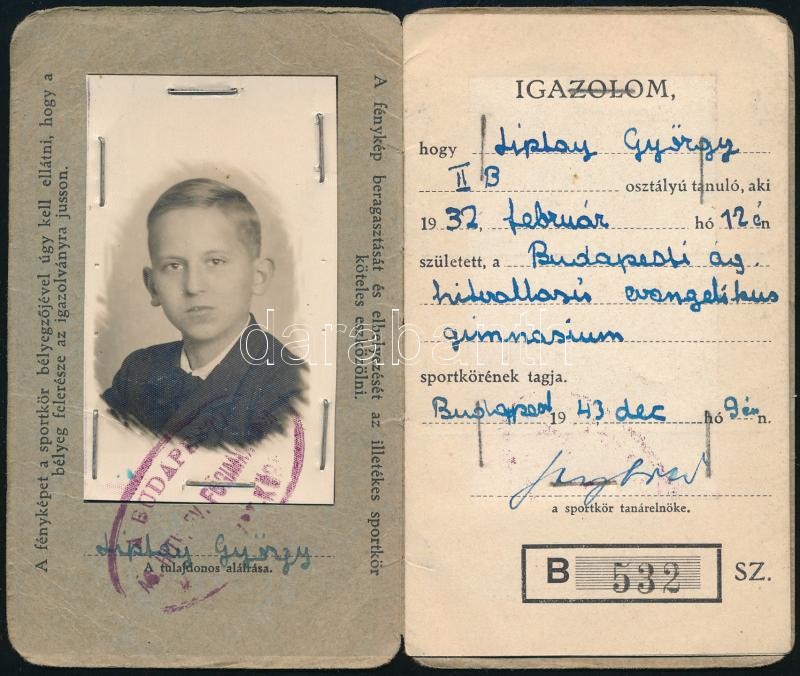 A fényképet a sportkör bélyegzőjével úgy kell ellátni, hogy a
bélyeg felerésze az igazolványra jusson.
A fénykép beragasztását és elhelyezését az illetékes sportkör
köteles eszközölni.
BUDAPESTI
Liptay György
A tulajdonos aláírása.
IGAZOLOM,
hogy Liptay György
II B osztályú tanuló, aki
1932, február hó 12 én
született, a Budapesti ág.
hitvallású evangélikus
gimnasium
sportkörének tagja.
Budapest 1943 dec hó 9 én.
a sportkör tanárelnöke.
B 532 SZ.
darabanth